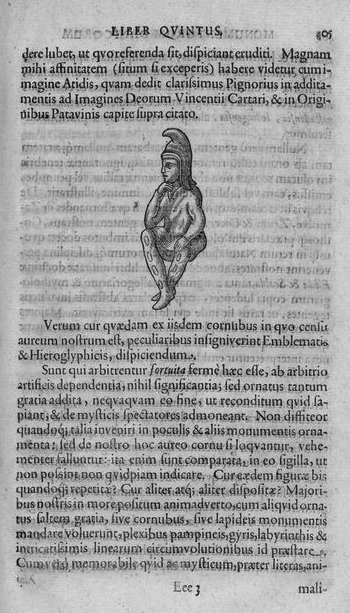 LIBER QVINTUS, 405
dere lubet, ut quo referenda sit, dispiciant eruditi. Magnam
mihi affinitatem (situm si exceperis) habere videtur cum i-
magine Atidis, quam dedit clarissimus Pignorius in addita-
mentis ad Imagines Deorum Vincentii Cartari, & in Origi-
nibus Patavinis capite supra citato.
Verum cur qvædam ex iisdem cornubus in qvo censu
aureum nostrum est, peculiaribus insigniverint Emblematis
& Hieroglyphicis, dispiciendum.
Sunt qui arbitrentur fortuita fermè hæc esse, ab arbitrio
artificis dependentia; nihil significantia; sed ornatus tantum
gratia addita, neqvaqvam eo fine, ut reconditum qvid sa-
piant, & de mysticis spectatores admoneant. Non diffiteor
quandoq; talia inveniri in poculis & aliis monumentis orna-
menta: sed de nostro hoc aureo cornu si loqvantur, vehe-
menter falluntur: ita enim sunt comparata, in eo sigilla, ut
non possint non qvidpiam indicare. Cur eædem figuræ bis
quandoqi repetitæ? Cur aliter atqi aliter dispositæ? Majori-
bus nostris in more positum animadverto, cum aliqvid orna-
tus saltem gratia, sive cornubus, sive lapideis monumentis
mandare voluerunt, plexibus pampineis, gyris, labyrinthis &
intricatissimis linearum circumvolutionibus id præstare.
Cum verò memorabile qvid ac mysticum, præter literas, ani-
Eee 3 mali-